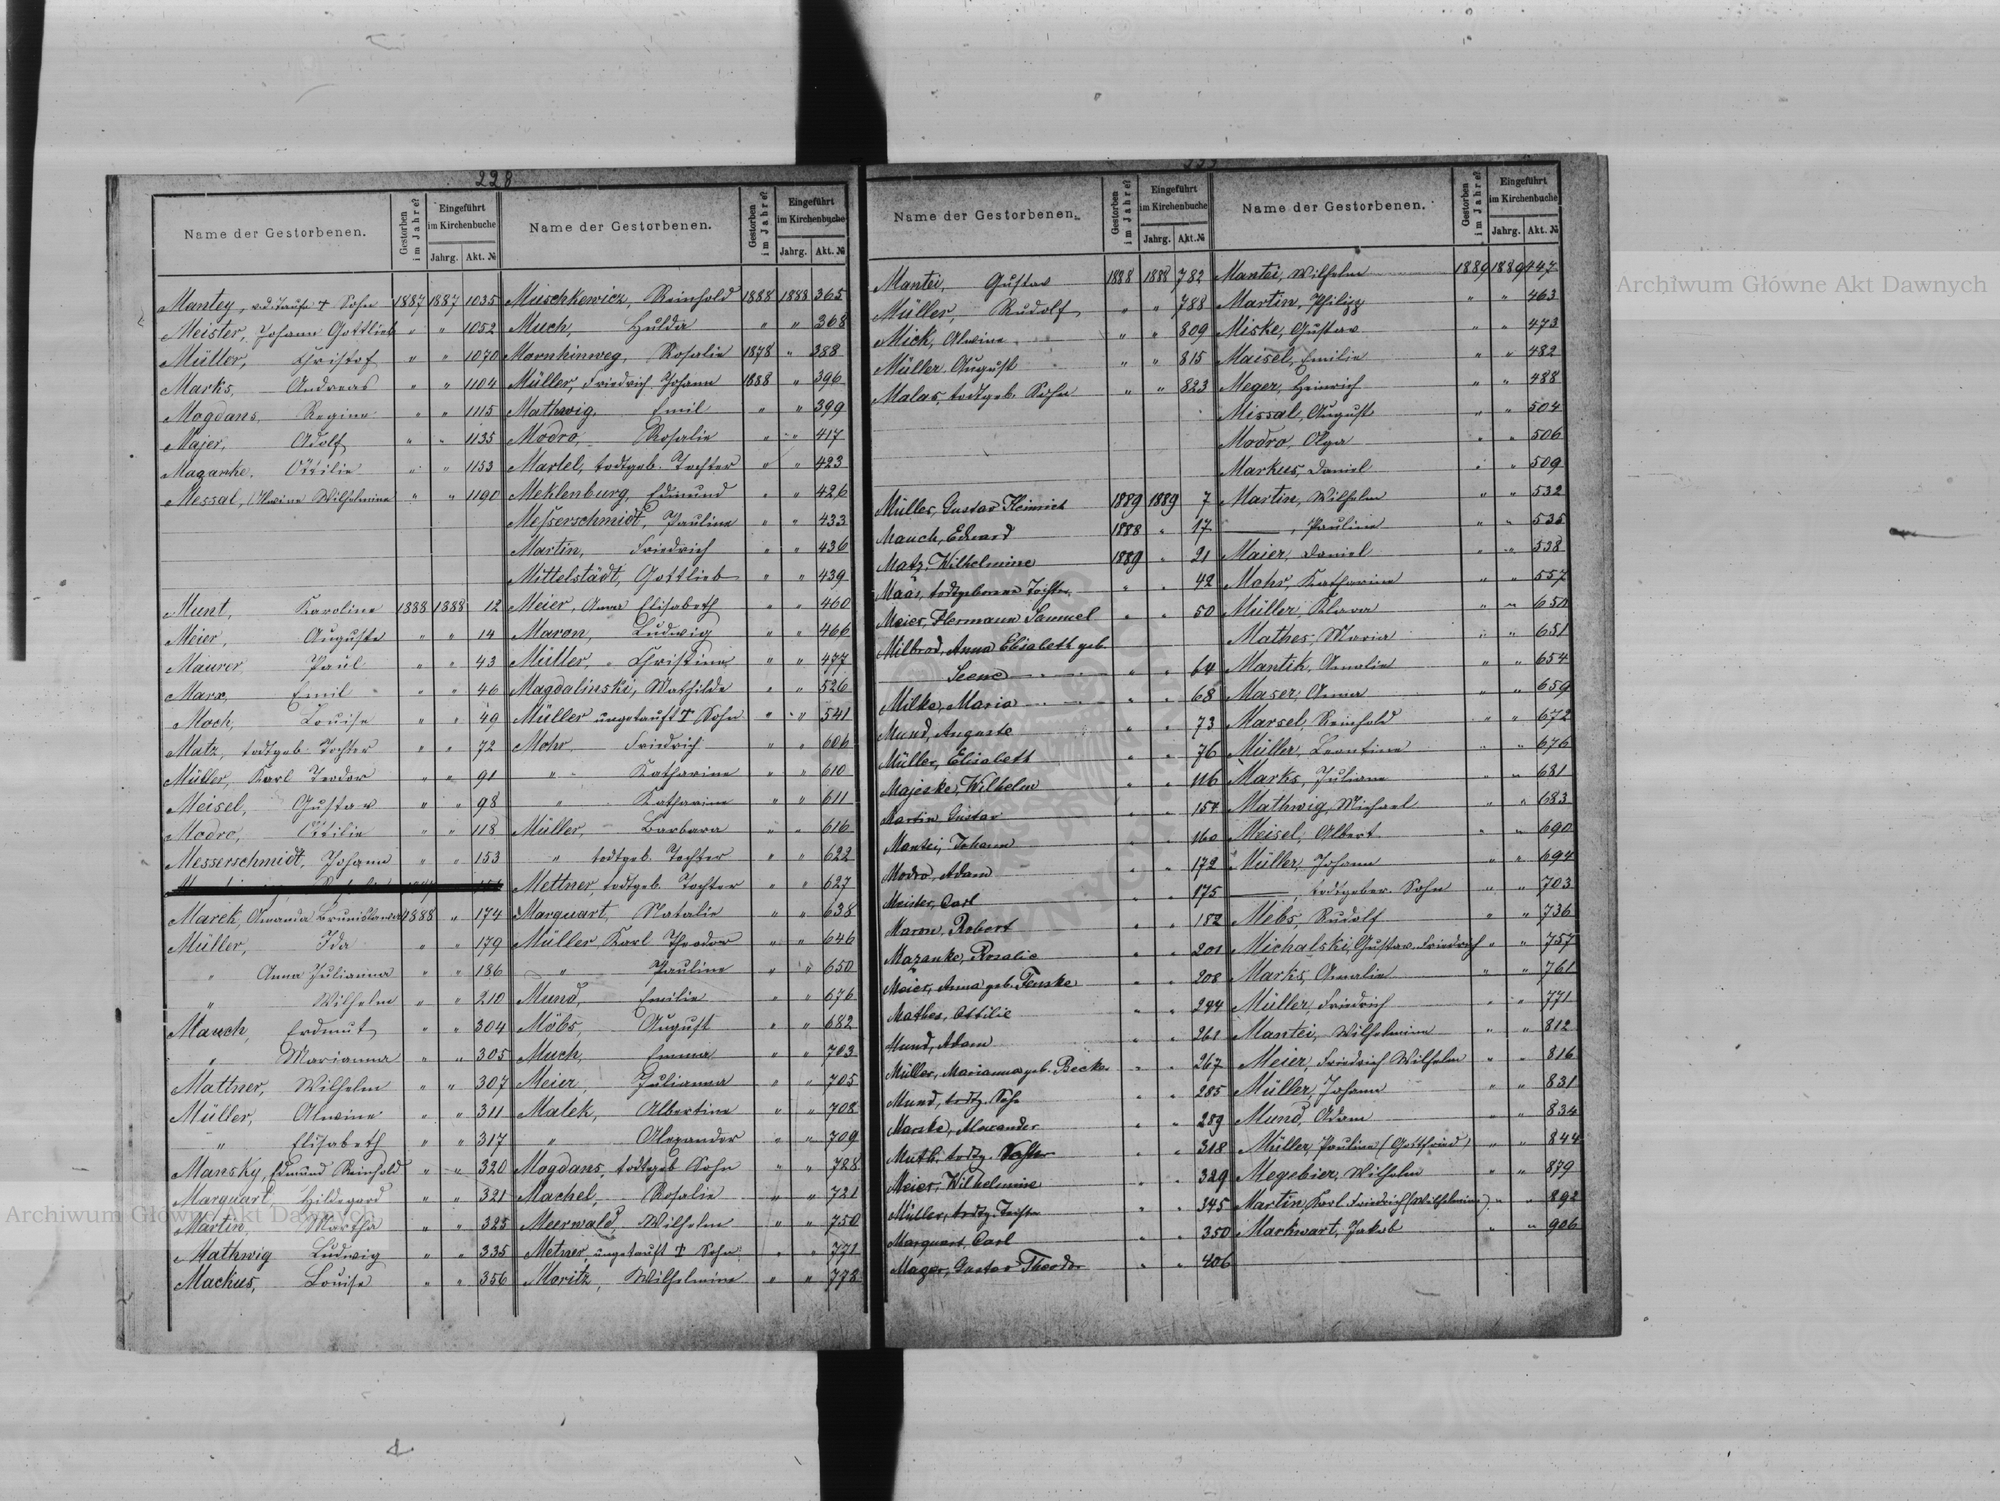 228
Name der Gestorbenen.
Gestorben im Jahre?
Eingeführt im Kirchenbuche
Jahrg. Akt. №
Mantey, v.d. Taufe † Sohn 1887 1887 1035
Meister, Johann Gottlieb " " 1052
Müller, Christof " " 1070
Marks, Andreas " " 1104
Mogdans, Regine " " 1115
Majer, Adolf " " 1135
Maganke, Ottilie " " 1153
Messal, Alwine Wilhelmine " " 1190
Munt, Karoline 1888 1888 12
Meier, Auguste " " 14
Maurer, Paul " " 43
Marx, Emil " " 46
Moch, Louise " " 49
Matz, todtgeb. Tochter " " 72
Müller, Karl Teodor " " 91
Meisel, Gustav " " 98
Modro, Ottilie " " 118
Messerschmidt, Johann " " 153
Marek, Amanda Brunislawa 1888 " 174
Müller, Ida " " 179
" Anna Julianna " " 186
" Wilhelm " " 210
Mauch, Erdmut " " 304
" Marianna " " 305
Mattner, Wilhelm " " 307
Müller, Alwine " " 311
" Elisabeth " " 317
Mansky, Edmund Reinhold " " 320
Marquart Hildegard " " 321
Martin, Martha " " 325
Mathwig Ludwig " " 335
Mackus, Louise " " 356
Name der Gestorbenen.
Gestorben im Jahre?
Eingeführt im Kirchenbuche
Jahrg. Akt. №
Muschkewicz, Reinhold 1888 1888 365
Much, Hulda " " 368
Mornhinweg, Rosalie 1878 " 388
Müller, Friedrich Johann 1888 " 396
Mathwig, Emil " " 399
Modro, Rosalie " " 417
Martel, todtgeb. Tochter " " 423
Meklenburg, Edmund " " 426
Messerschmidt, Pauline " " 433
Martin, Friedrich " " 436
Mittelstädt, Gottlieb " " 439
Meier, Anna Elisabeth " " 460
Maron, Ludwig " " 466
Müller, Christine " " 477
Magdalinski, Mathilde " " 526
Müller ungetauft † Sohn " " 541
Mohr Friedrich " " 606
" Katharine " " 610
" Katharine " " 611
Müller, Barbara " " 616
" todtgeb. Tochter " " 622
Mettner, todtgeb. Tochter " " 627
Marquart, Natalie " " 638
Müller Karl Theodor " " 646
" Pauline " " 650
Mund, Emilie " " 676
Möbs, August " " 682
Much, Emma " " 703
Meier, Julianna " " 705
Malek, Albertine " " 708
" Alexander " " 709
Mogdans, todtgeb. Sohn " " 728
Machel, Rosalie " " 721
Meerwald, Wilhelm " " 750
Metner, ungetauft † Sohn " " 771
Moritz, Wilhelmine " " 772
Name der Gestorbenen.
Gestorben im Jahre?
Eingeführt im Kirchenbuche
Jahrg. Akt. №
Mantei, Gustav 1888 1888 782
Müller, Rudolf " " 788
Mick, Alwine " " 809
Müller August " " 815
Malas, todtgeb. Sohn " " 823
Müller, Gustav Heinrich 1889 1889 7
Mauch, Eduard 1888 " 17
Matz, Wilhelmine 1889 " 21
Maas, todtgeborene Tochter " " 42
Meier, Hermann Samuel " " 50
Milbrod, Anna Elisabeth geb.
" " 64
Milke, Maria " " 68
Mund, Auguste " " 73
Müller, Elisabeth " " 76
Majeske, Wilhelm " " 116
Martin Gustav " " 157
Mantei, Johann " " 160
Modro, Adam " " 172
Meister, Carl " " 175
Maron, Robert " " 182
Mazanke, Rosalie " " 201
Meier, Anna geb. Fenske " " 208
Mathes, Ottilie " " 244
Mund, Adam " " 261
Müller, Marianna geb. Becker " " 267
Mund, todtg. Sohn " " 285
Marske, Alexander " " 289
Muth, todtg. " " 318
Meier, Wilhelmine " " 329
Müller, todtg. Tochter " " 345
Marquart, Carl " " 350
Mager, Gustav Theodor " " 406
Name der Gestorbenen.
Gestorben im Jahre?
Eingeführt im Kirchenbuche
Jahrg. Akt. №
Mantei, Wilhelm 1889 1889 447
Martin, Philipp " " 463
Miske, Gustav " " 473
Maisel, Emilie " " 482
Meger, Heinrich " " 488
Missal, August " " 504
Modro, Olga " " 506
Markus, Daniel " " 509
Martin, Wilhelm " " 532
—, Pauline " " 535
Maier, Daniel " " 538
Mohr, Katharine " " 557
Müller, Klara " " 650
Mathes, Maria " " 651
Mantik, Amalie " " 654
Maser, Anna " " 659
Marsel, Reinhold " " 672
Müller, Leontine " " 676
Marks, Juliane " " 681
Mathwig, Michael " " 683
Meisel, Albert " " 690
Müller, Johann " " 694
—, todtgebor. Sohn " " 703
Mebs, Rudolf " " 736
Michalski, Gustav Friedrich " " 757
Marks, Amalie " " 761
Müller, Friedrich " " 771
Mantei, Wilhelmine " " 812
Meier, Friedrich Wilhelm " " 816
Müller, Johann " " 831
Mund, Adam " " 834
Müller, Pauline (Gottfried) " " 844
Megebier, Wilhelm " " 879
Martin, Karl Friedrich (Wilhelmine) " " 892
Markwart, Jakob " " 906
Archiwum Główne Akt Dawnych
Archiwum Główne Akt Dawnych